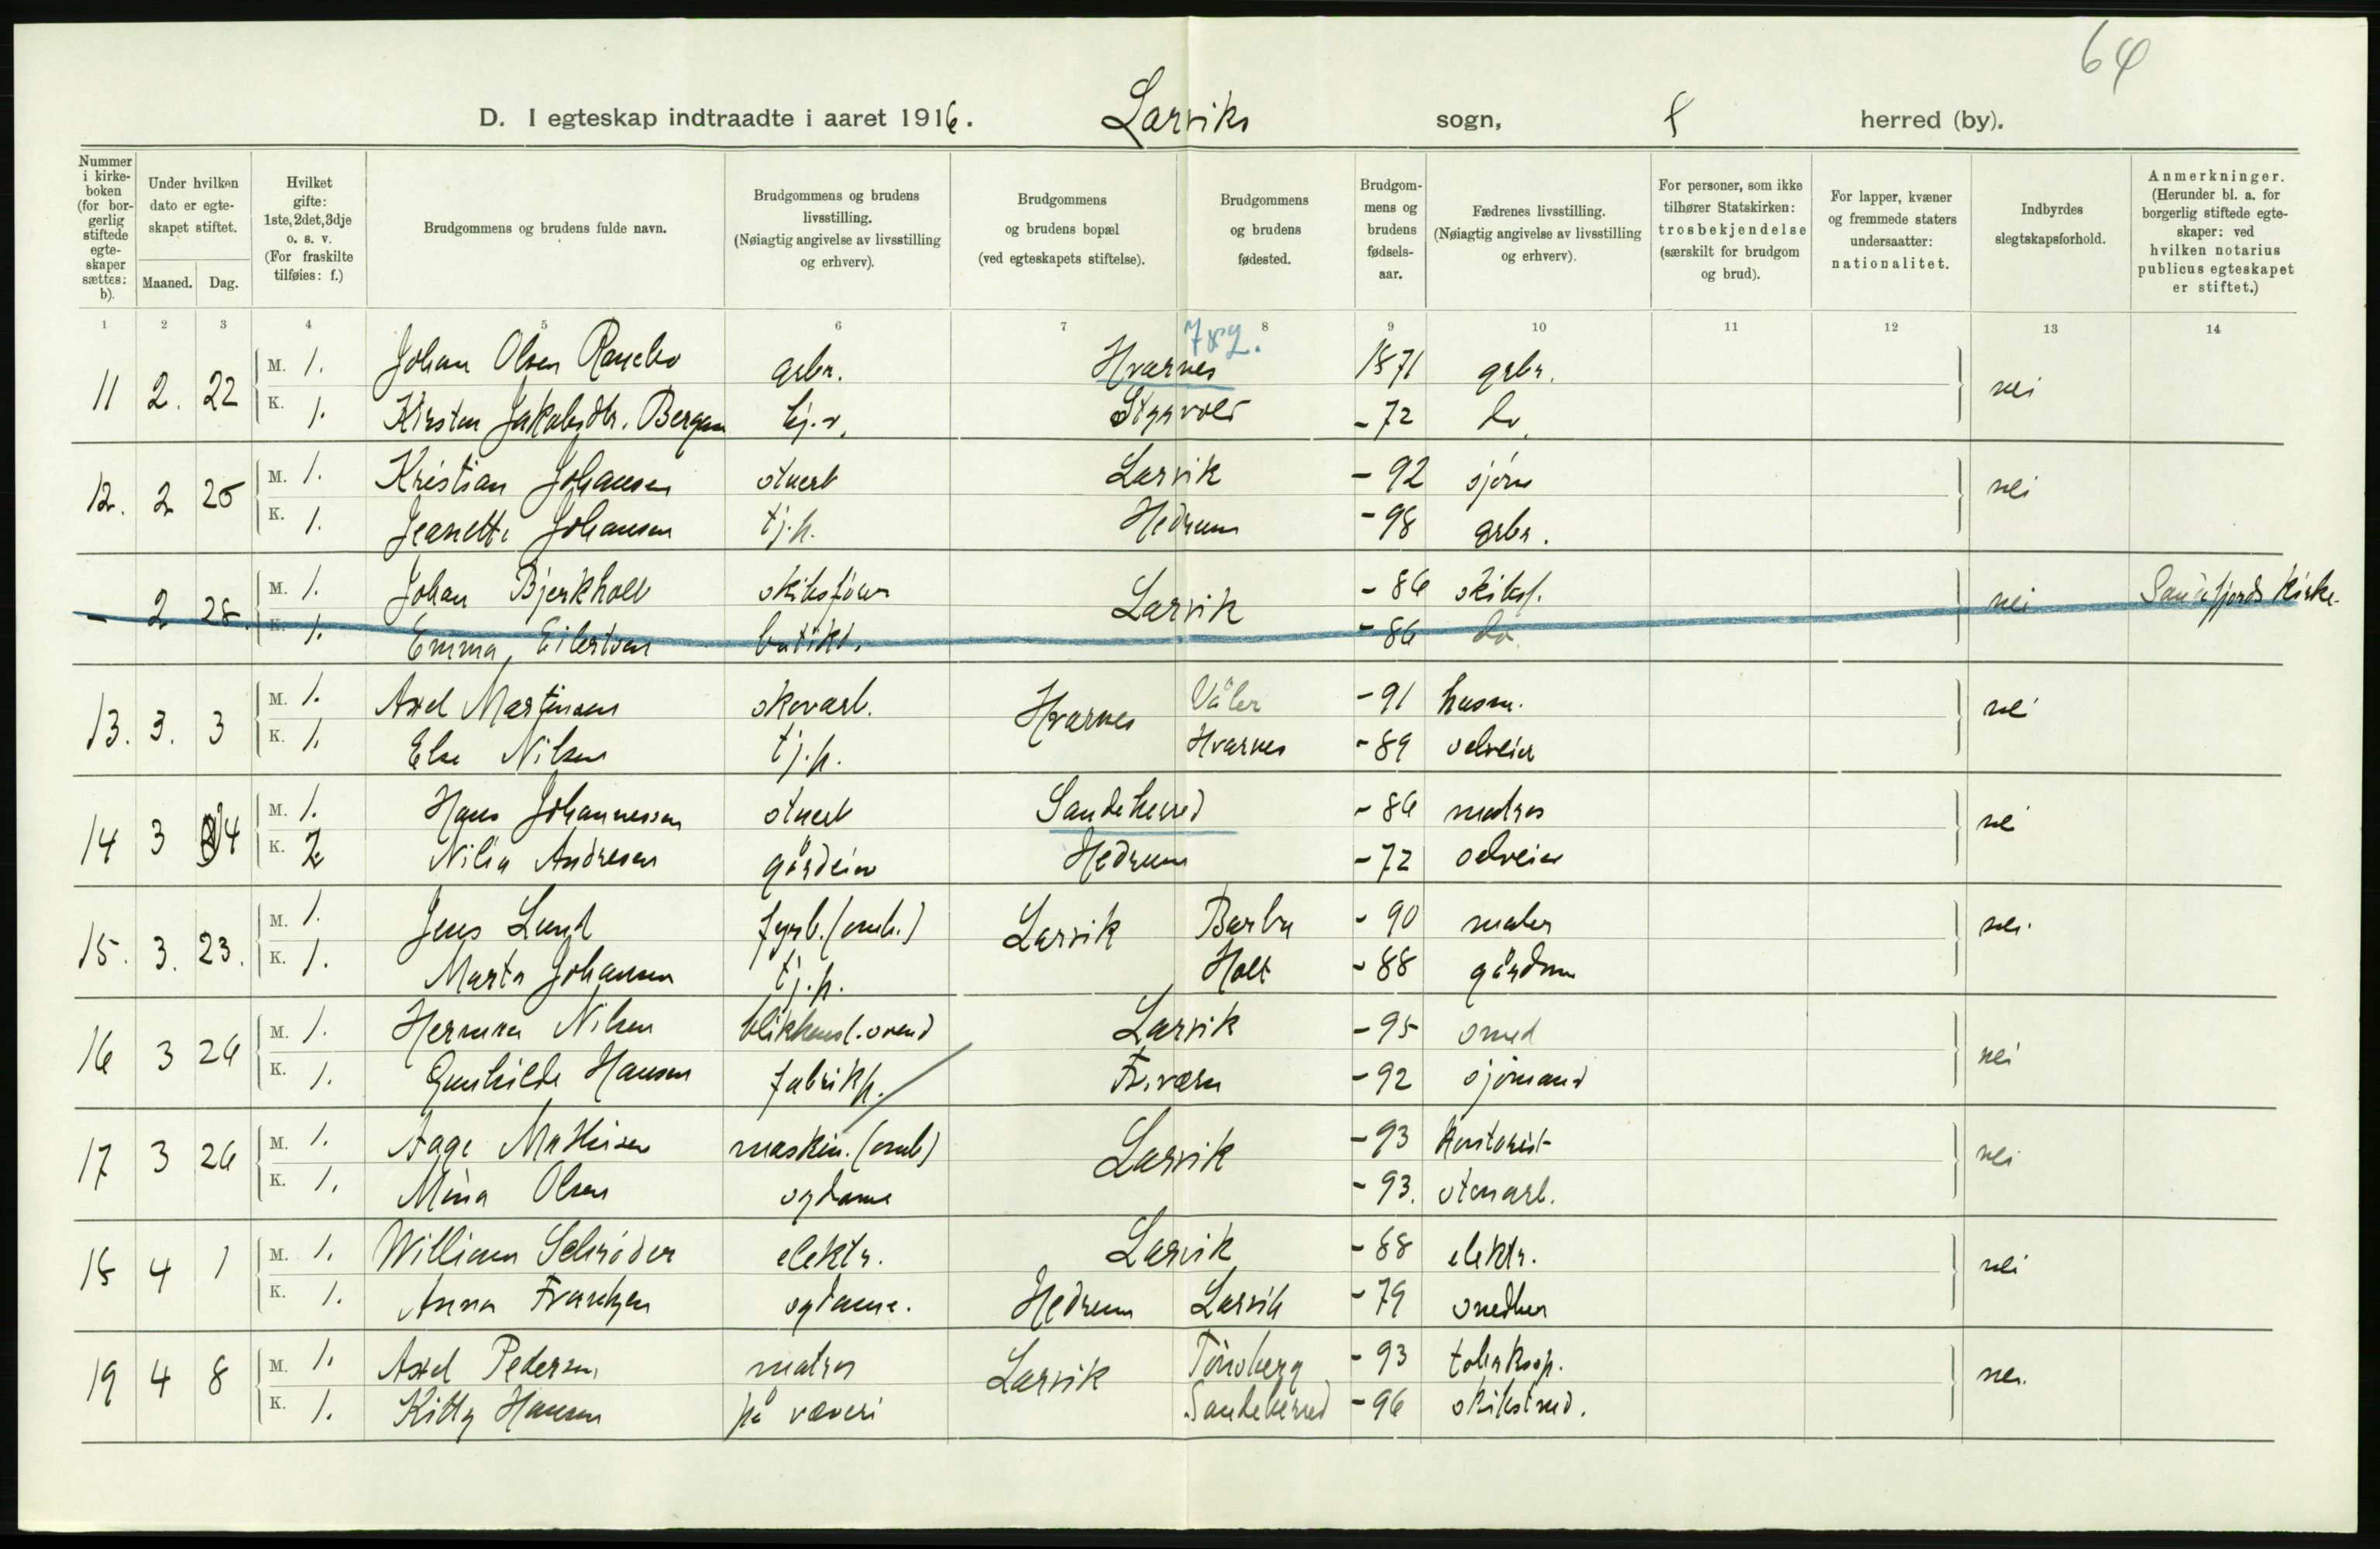 64
D. I egteskap indtraadte i aaret 1916. Larviks sogn, herred (by).
Nummer i kirkeboken (for borgerlig stiftede egteskaper sættes: b).
Under hvilken dato er egteskapet stiftet.
Maaned. Dag.
Hvilket gifte: 1ste, 2det, 3dje o. s. v. (For fraskilte tilføies: f.)
Brudgommens og brudens fulde navn.
Brudgommens og brudens livsstilling. (Nøiagtig angivelse av livsstilling og erhverv).
Brudgommens og brudens bopæl (ved egteskapets stiftelse).
Brudgommens og brudens fødested.
Brudgommens og brudens fødselsaar.
Fædrenes livsstilling. (Nøiagtig angivelse av livsstilling og erhverv).
For personer, som ikke tilhører Statskirken: trosbekjendelse (særskilt for brudgom og brud).
For lapper, kvæner og fremmede staters undersaatter: nationalitet.
Indbyrdes slegtskapsforhold.
Anmerkninger. (Herunder bl. a. for borgerlig stiftede egteskaper: ved hvilken notarius publicus egteskapet er stiftet.)
1 2 3 4 5 6 7 8 9 10 11 12 13 14
782.
11 2. 22 M. 1. Johan Olsen grbr. Hvarnes 1871 grbr. nei
K. 1. Kirsten Jakobsdtr. Bergan tj.p. Styrvold -72 do.
12. 2 25 M. 1. Kristian Johansen stuerb Larvik -92 sjøm nei
K. 1. Jeanette Johansen tj.p. Hedrum -98 grbr.
- 2 28. M. 1. Johan Bjerkholt skibsfører Larvik -86 skibsf. nei Sandefjords Kirke.
K. 1. Emma Eilertsen butikd. -86 do
13. 3. 3 M. 1. Axel Martinsen skovarb. Hvarnes Våler -91 husm. nei
K. 1. Else Nilsen tj.p. Hvarnes -89 selveier
14 3 4 M. 1. Hans Johannessen stuerb Sandeherred -86 matros nei
K. 2 Nilia Andresen gårdeier Hedrum -72 selveier
15. 3. 23. M. 1. Jens Lund fyrb. (omb.) Larvik Barbu -90 maler nei.
K. 1. Marta Johansen tj.p. Holt -88 gårdm
16 3 26 M. 1. Herman Nilsen blikkensl.svend Larvik -95 smed nei
K. 1. Gunhilde Hansen fabrikp. Fr.værn -92 sjømand
17 3 26 M. 1. Aage Mathisen maskin. (omb) Larvik -93 Kontorist nei
K. 1. Mina Olsen sydame -93. stenarb.
18 4 1 M. 1. William Schrøder elektr. Larvik -88 elektr. nei
K. 1. Anna Frantzen sydame. Hedrum Larvik -79 snedker
19 4 8 M. 1. Axel Pedersen matros Larvik Tønsberg -93 nei.
K. 1. Kitty Hansen på væveri Sandeherred -96